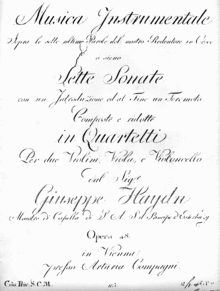 Musica Instrumentale
Sopra le sette ultime Parole del nostro Redentore in Croce
o sieno
Sette Sonate
con un Introduzione ed al Fine un Teremoto
Composte e ridotte
in Quartetti
Per due Violini, Viola, e Violoncello
dal Sigr
Giuseppe Haydn
Maestro di Capella di S. A. S. il Principe d'Esterházy
Opera 48.
in Vienna
presso Artaria Compagni.
Cum Priv. S. C. M.